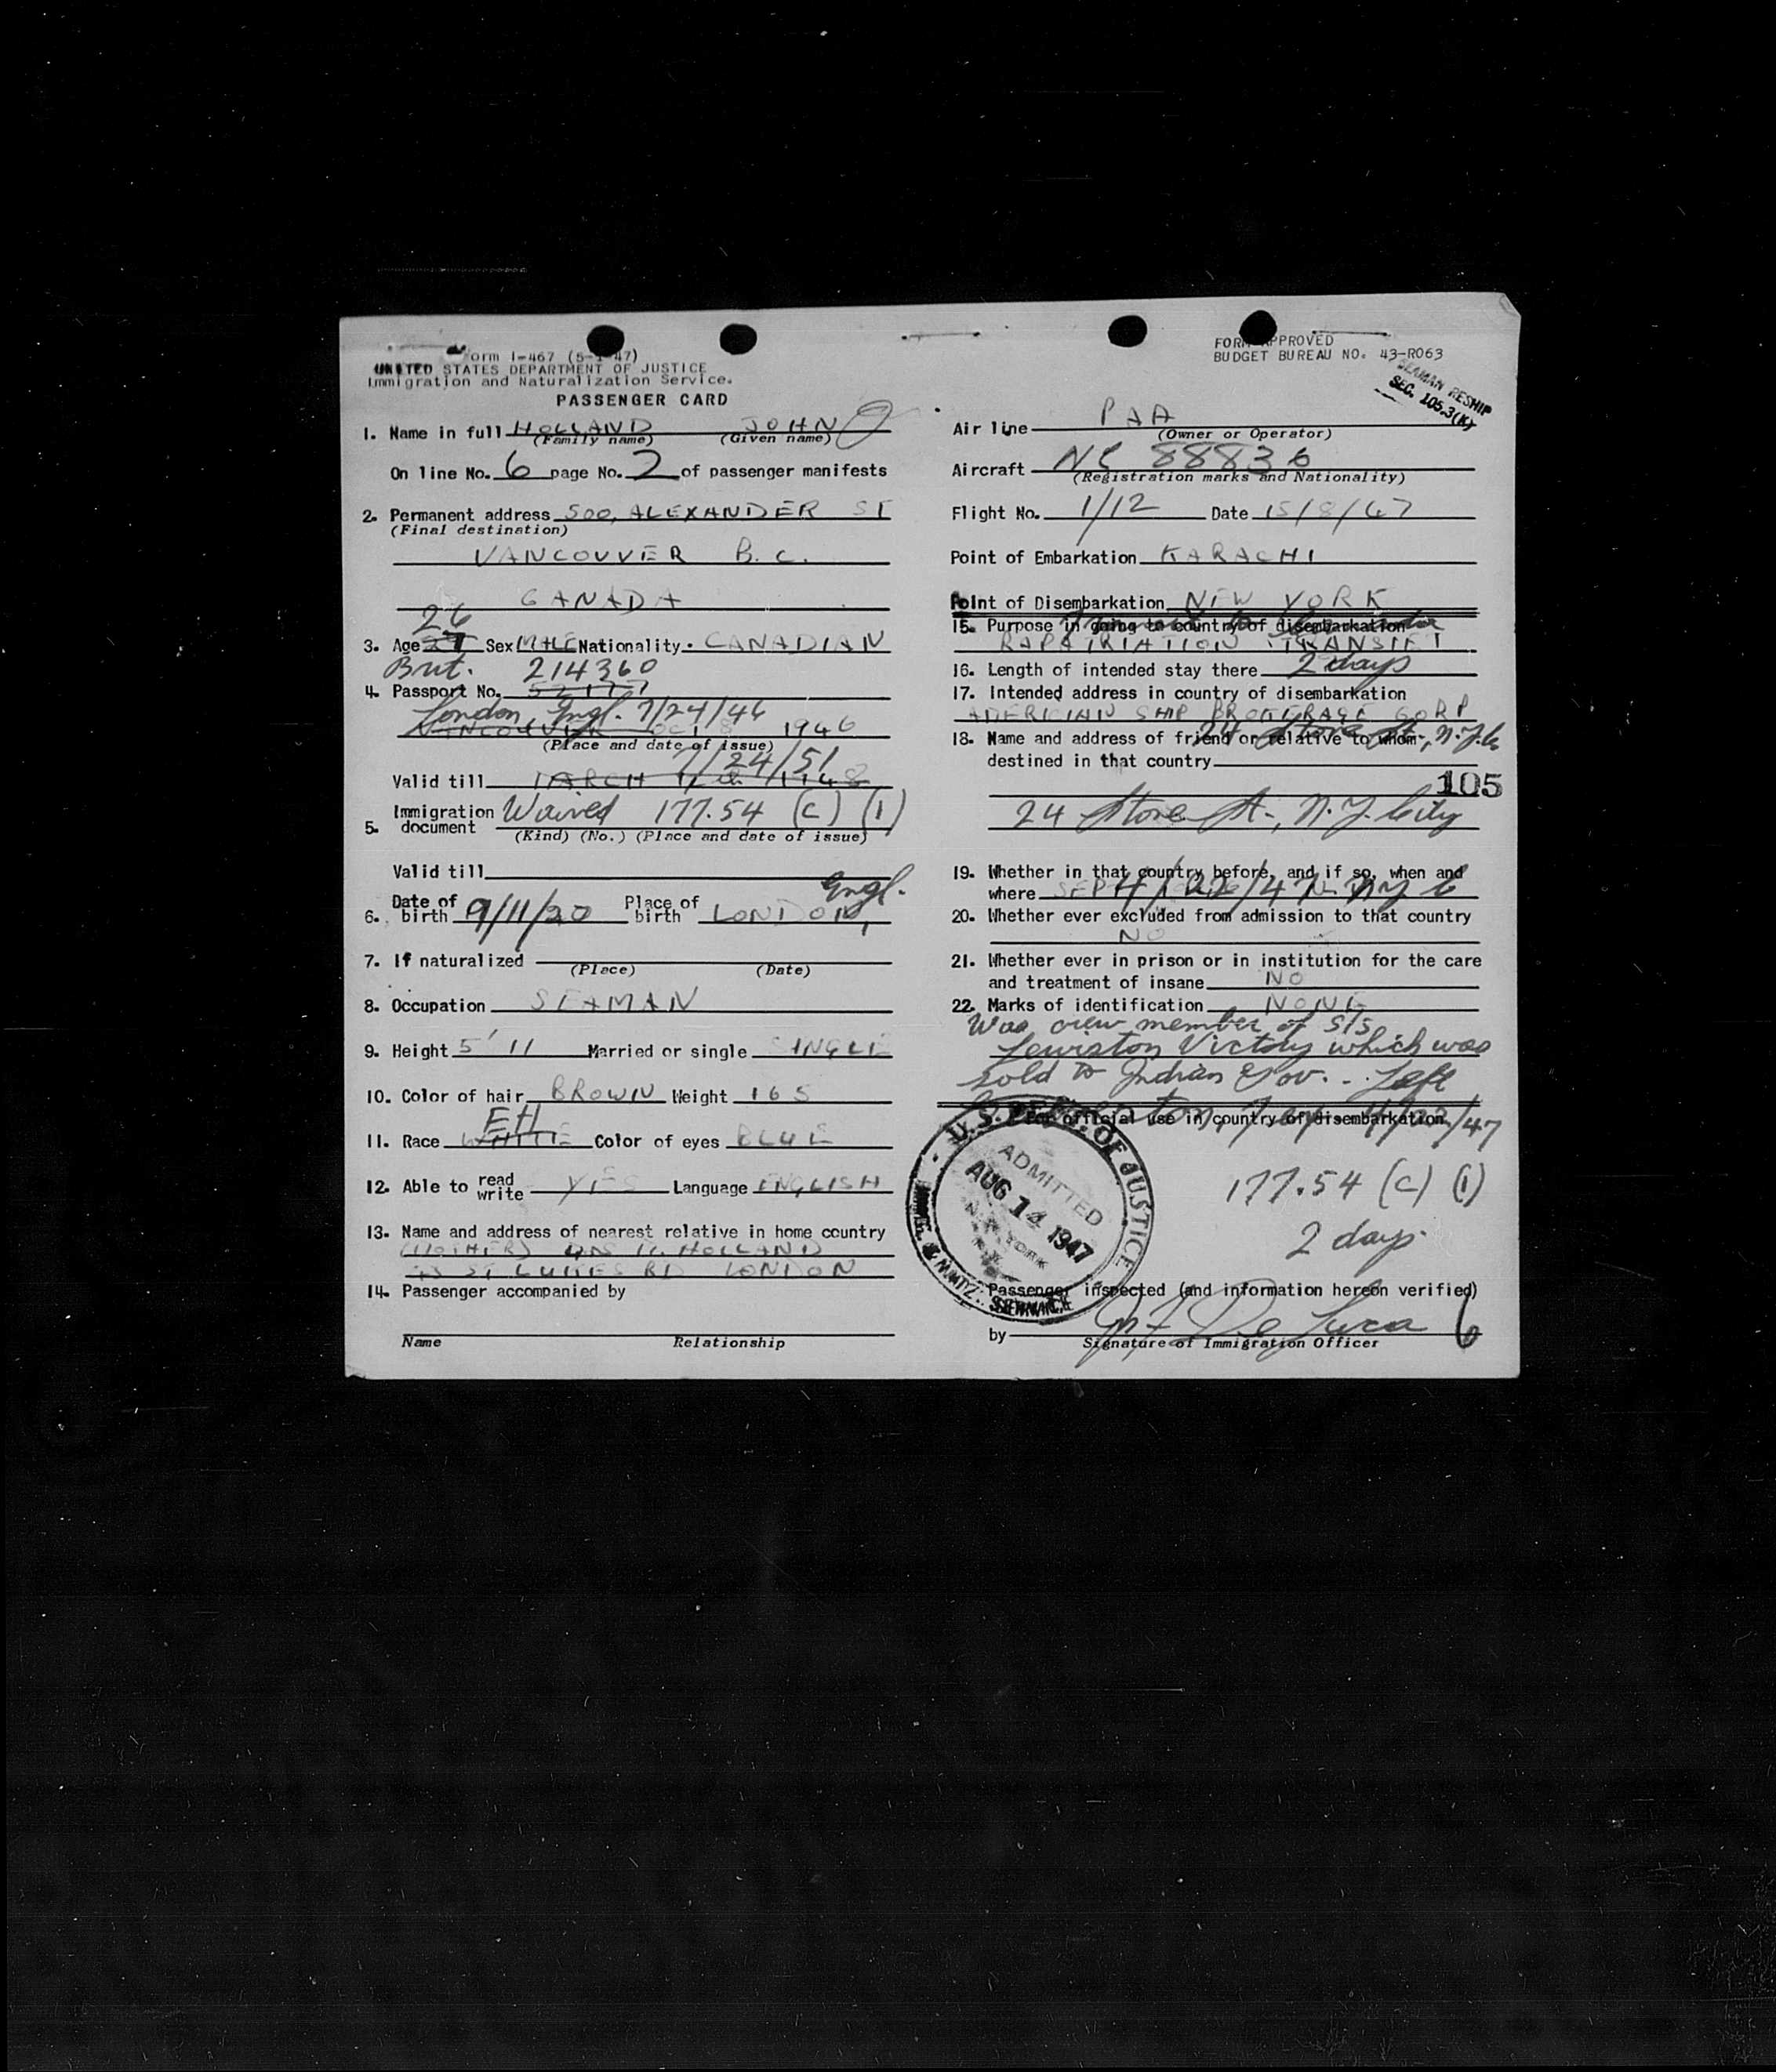 Form I-467 (5-1-47)
UNITED STATES DEPARTMENT OF JUSTICE
Immigration and Naturalization Service.
PASSENGER CARD
1. Name in full HOLLAND JOHN
(Family name) (Given name)
On line No. 6 page No. 2 of passenger manifests
2. Permanent address 500, ALEXANDER ST
(Final destination)
VANCOUVER B.C.
CANADA
26
3. Age 27 Sex MALE Nationality CANADIAN
Brit. 214360
4. Passport No. 52177
London, Engl. 7/24/46
VANCOUVER OCT 8 1946
(Place and date of issue)
7/24/51
Valid till MARCH 1948
Immigration Waived 177.54 (C) (1)
5. document
(Kind) (No.) (Place and date of issue)
Valid till
Engl.
6. Date of birth 9/11/20 Place of birth LONDON,
7. If naturalized
(Place) (Date)
8. Occupation SEAMAN
9. Height 5' 11 Married or single SINGLE
10. Color of hair BROWN Weight 165
EH
11. Race WHITE Color of eyes BLUE
12. Able to read write YES Language ENGLISH
13. Name and address of nearest relative in home country
(MOTHER) HOLLAND
ST LUKES RD LONDON
14. Passenger accompanied by
Name Relationship
FORM APPROVED
BUDGET BUREAU NO. 43-R063
SEAMAN RESHIP
SEC. 105.3(K)
Air line PAA
(Owner or Operator)
Aircraft NC 88836
(Registration marks and Nationality)
Flight No. 1/12 Date 15/8/47
Point of Embarkation KARACHI
Point of Disembarkation NEW YORK
15. Purpose in going to country of disembarkation
RAPATRIATION TRANSIET
16. Length of intended stay there 2 days
17. Intended address in country of disembarkation
AMERICIAN SHIP BROKERAGE CORP
24 Stone St., N.Y.C.
18. Name and address of friend or relative to whom
destined in that country
105
24 Stone St., N.Y. City
19. Whether in that country before, and if so, when and
where SEPT 4/22/47 N.Y.C
20. Whether ever excluded from admission to that country
NO
21. Whether ever in prison or in institution for the care
and treatment of insane NO
22. Marks of identification NONE
Was crew member of S/S
Lewiston Victory which was
sold to Indian Gov. Left
4/22/47
For official use in country of disembarkation
U.S. DEPT. OF JUSTICE
ADMITTED
AUG 14 1947
NEW YORK
N.Y.
IMMIG. & NATZ. SERVICE
177.54 (C) (1)
2 days.
Passenger inspected (and information hereon verified)
by De Luca 6
Signature of Immigration Officer